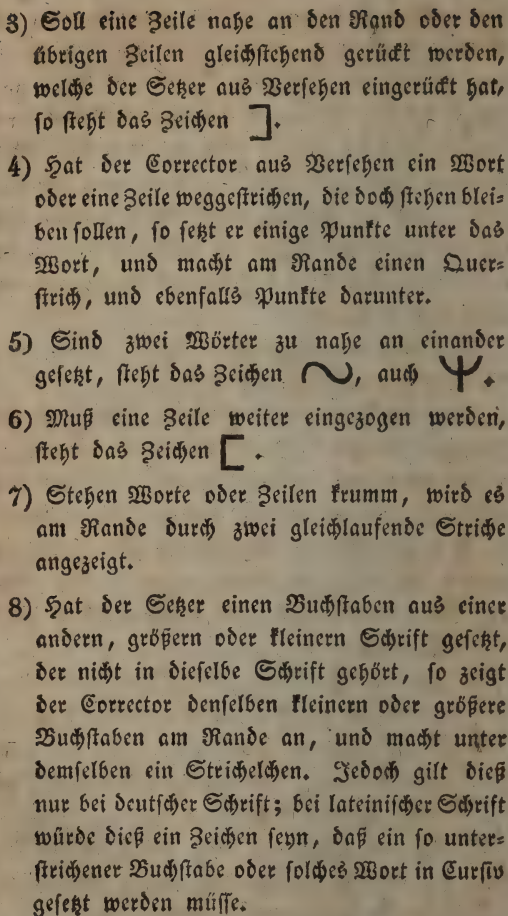 3) Soll eine Zeile nahe an den Rand oder den
übrigen Zeilen gleichstehend gerückt werden,
welche der Setzer aus Versehen eingerückt hat,
so steht das Zeichen ].
4) Hat der Corrector aus Versehen ein Wort
oder eine Zeile weggestrichen, die doch stehen blei-
ben sollen, so setzt er einige Punkte unter das
Wort, und macht am Rande einen Quer-
strich, und ebenfalls Punkte darunter.
5) Sind zwei Wörter zu nahe an einander
gesetzt, steht das Zeichen ∽, auch Ψ.
6) Muß eine Zeile weiter eingezogen werden,
steht das Zeichen [.
7) Stehen Worte oder Zeilen krumm, wird es
am Rande durch zwei gleichlaufende Striche
angezeigt.
8) Hat der Setzer einen Buchstaben aus einer
andern, größern oder kleinern Schrift gesetzt,
der nicht in dieselbe Schrift gehört, so zeigt
der Corrector denselben kleinern oder größere
Buchstaben am Rande an, und macht unter
demselben ein Strichelchen. Jedoch gilt dieß
nur bei deutscher Schrift; bei lateinischer Schrift
würde dieß ein Zeichen seyn, daß ein so unter-
strichener Buchstabe oder solches Wort in Cursiv
gesetzt werden müsse.